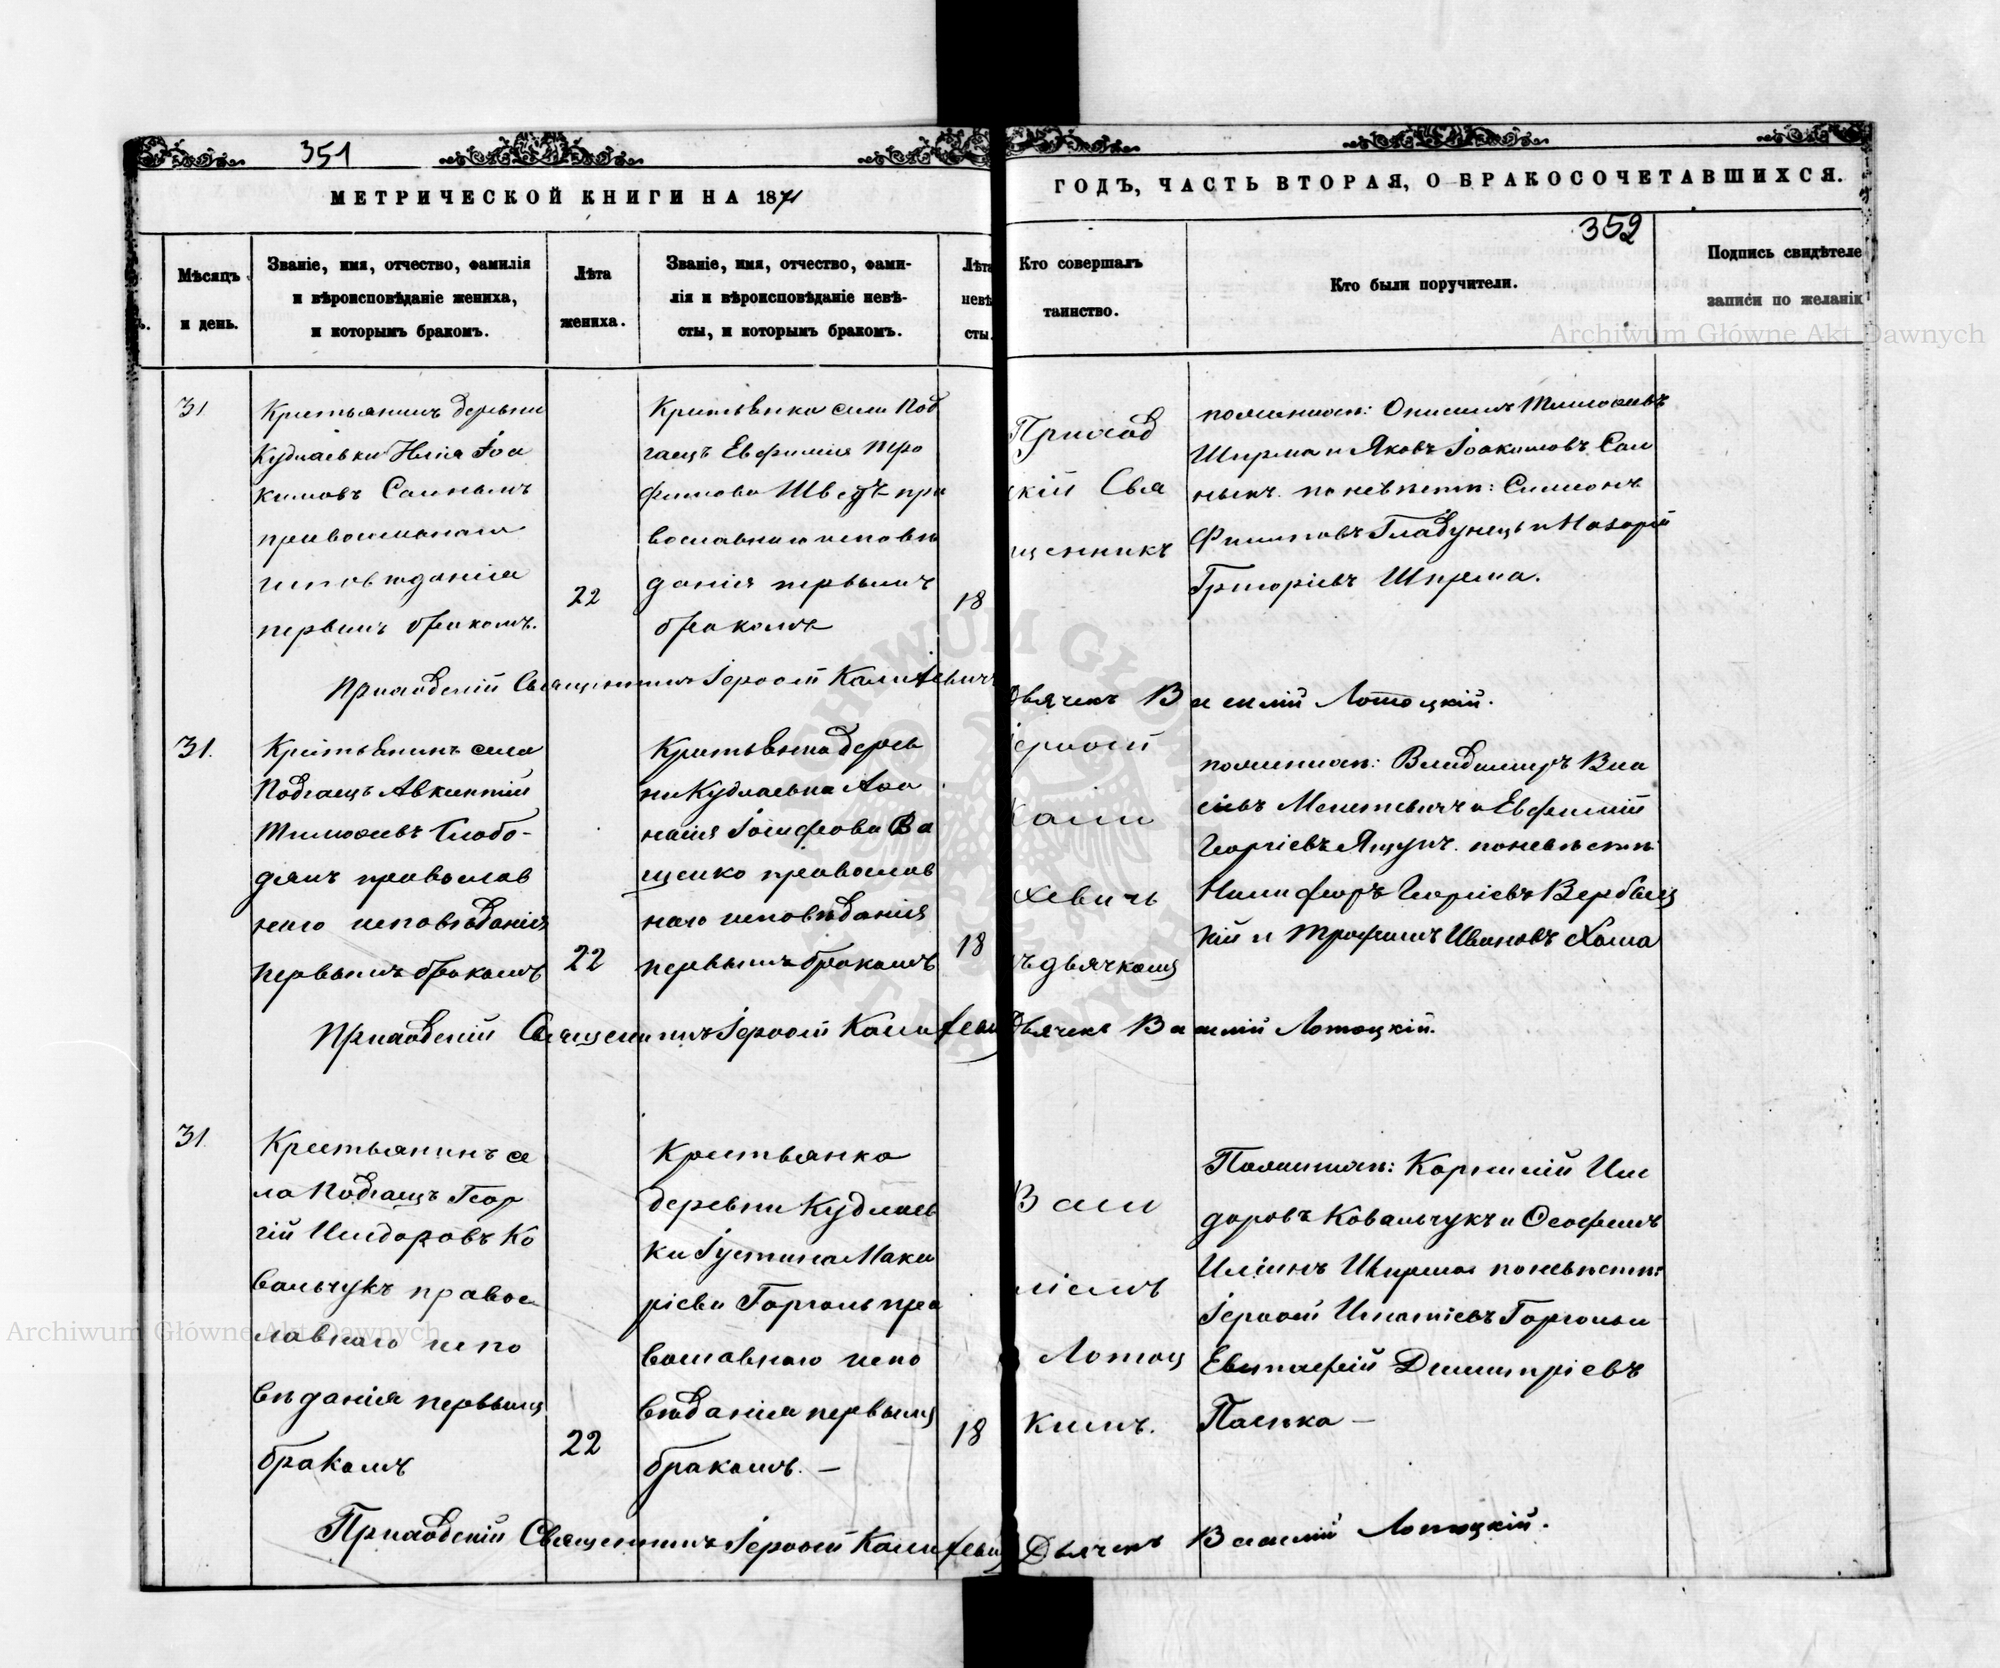 351
МЕТРИЧЕСКОЙ КНИГИ НА 1871
ГОДЪ, ЧАСТЬ ВТОРАЯ, О БРАКОСОЧЕТАВШИХСЯ.
352
Мѣсяцъ
и день.
Званіе, имя, отчество, фамилія
и вѣроисповѣданіе жениха,
и которымъ бракомъ.
Лѣта
жениха.
Званіе, имя, отчество, фами-
лія и вѣроисповѣданіе невѣ-
сты, и которымъ бракомъ.
Лѣта
невѣ
сты.
Кто совершалъ
таинство.
Кто были поручители.
Подпись свидѣтеле
записи по желанію
Archiwum Główne Akt Dawnych
31
Крестьянинъ деревни
Кудлаевки Илія Іоа
кимовъ
православнаго
исповѣданія
первымъ бракомъ.
22
Крестьянка села Под
гаецъ Евфимія Тро
фимова Швецъ пра
вославнаго исповѣ
данія первымъ
бракомъ
18
Приход
скій Свя
щенникъ
по женихѣ: Онисимъ Тимофеевъ
Ширма и Яковъ Іоакимовъ
по невѣстѣ: Симеонъ
Филиповъ Гладунецъ и Назарій
Григоріевъ Ширма.
Приходскій Священникъ Іероѳей Калихевичъ
Дьячекъ Василій Лотоцкій.
31.
Крестьянинъ села
Подгаецъ Авксентий
Тимофеевъ Слобо-
дянъ православ
наго исповѣданія
первымъ бракомъ
22
Крестьянка дерев
ни Кудлаевки Афа
насія Іосифова Ва
щенко православ
наго исповѣданія
первымъ бракомъ
18
Іероѳей
Кали
хевичъ
съ дьячкомъ
по женихѣ: Владимиръ Вас
и Евфимій
Георгіевъ Ящукъ. по невѣстѣ
Никифоръ Георгіевъ Вербиц
кій и Трофимъ Ивановъ Хома
Приходскій Священникъ Іероѳей Калихевичъ
Дьячекъ Василій Лотоцкій.
31.
Крестьянинъ се
ла Подгаецъ Геор
гій Исидоровъ Ко
вальчукъ правос
лавнаго испо
вѣданія первымъ
бракомъ
22
Крестьянка
деревни Кудлаев
ки Іустина Мака
ріева Горголь пра
вославнаго испо
вѣданія первымъ
бракомъ. —
18
Васи
ліемъ
Лотоц
кимъ.
По женихѣ: Корнилій Иси
доровъ Ковальчукъ и Ѳеофилъ
Иліинъ Ширма по невѣстѣ:
Іероѳей Игнатіевъ Горголь и
Евстафій Димитріевъ
Пасѣка —
Приходскій Священникъ Іероѳей Калихевичъ
Дьячекъ Василій Лотоцкій.
Archiwum Główne Akt Dawnych